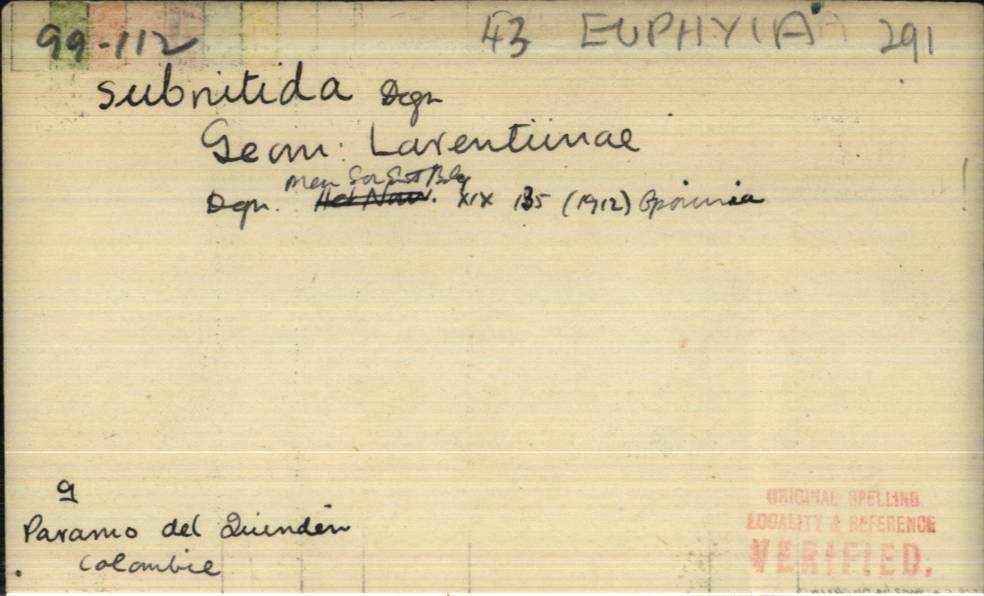 99-112 43 EUPHYIA 291
subnitida Dogn
Geom: Larentiinae
Mem Soc Ent Belg
Dogn. Het Nouv. XIX 135 (1912) Epirrita
Paramo del Quindin
Colombie
ORIGINAL SPELLING
LOCALITY & REFERENCE
VERIFIED.